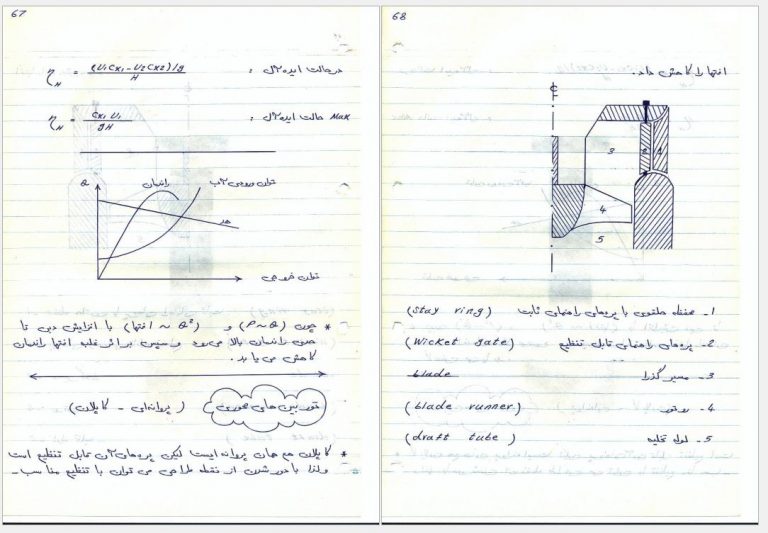 67
در حالت ایده آل : η_H = (U₁Cx₁ - U₂Cx₂)/g / H
Max حالت ایده آل : η_H = Cx₁ U₁ / gH
Q
راندمان
توان ورودی آب
هد
توان خروجی
* چون (P ~ Q) و (افتها ~ Q²) با افزایش دبی تا
حدی راندمان بالا می رود و سپس بر اثر غلبه افتها راندمان
کاهش می یابد.
توربین های محوری (پروانه ای - کاپلان)
* کاپلان هم همان پروانه ایست لیکن پره های آن قابل تنظیم است
ولذا با دور شدن از نقطه طراحی می توان با تنظیم مناسب -
68
افتها را کاهش داد.
3
2
1
4
5
1- محفظه حلقوی با پره های راهنمای ثابت (stay ring)
2- پره های راهنمای قابل تنظیم (Wicket gate)
3- مسیر گذرا blade
4- روتور (blade runner)
5- لوله تخلیه (draft tube)